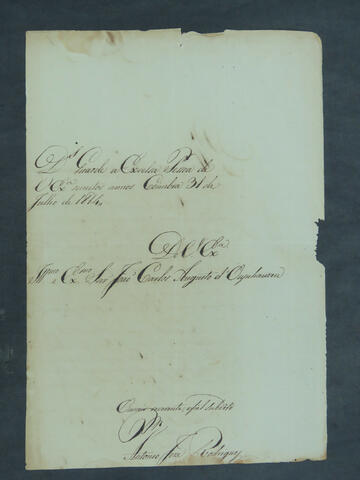 D.s Guarde a Excelsa Pessoa de
V. Ex.a muitos annos Coimbra 31 de
Julho de 1814,
De V. Ex.a
Illmo e Exmo Snr José Carlos Augusto d'Oeynhausen
reverente, e fiel subdito
Antonio José Rodrigues